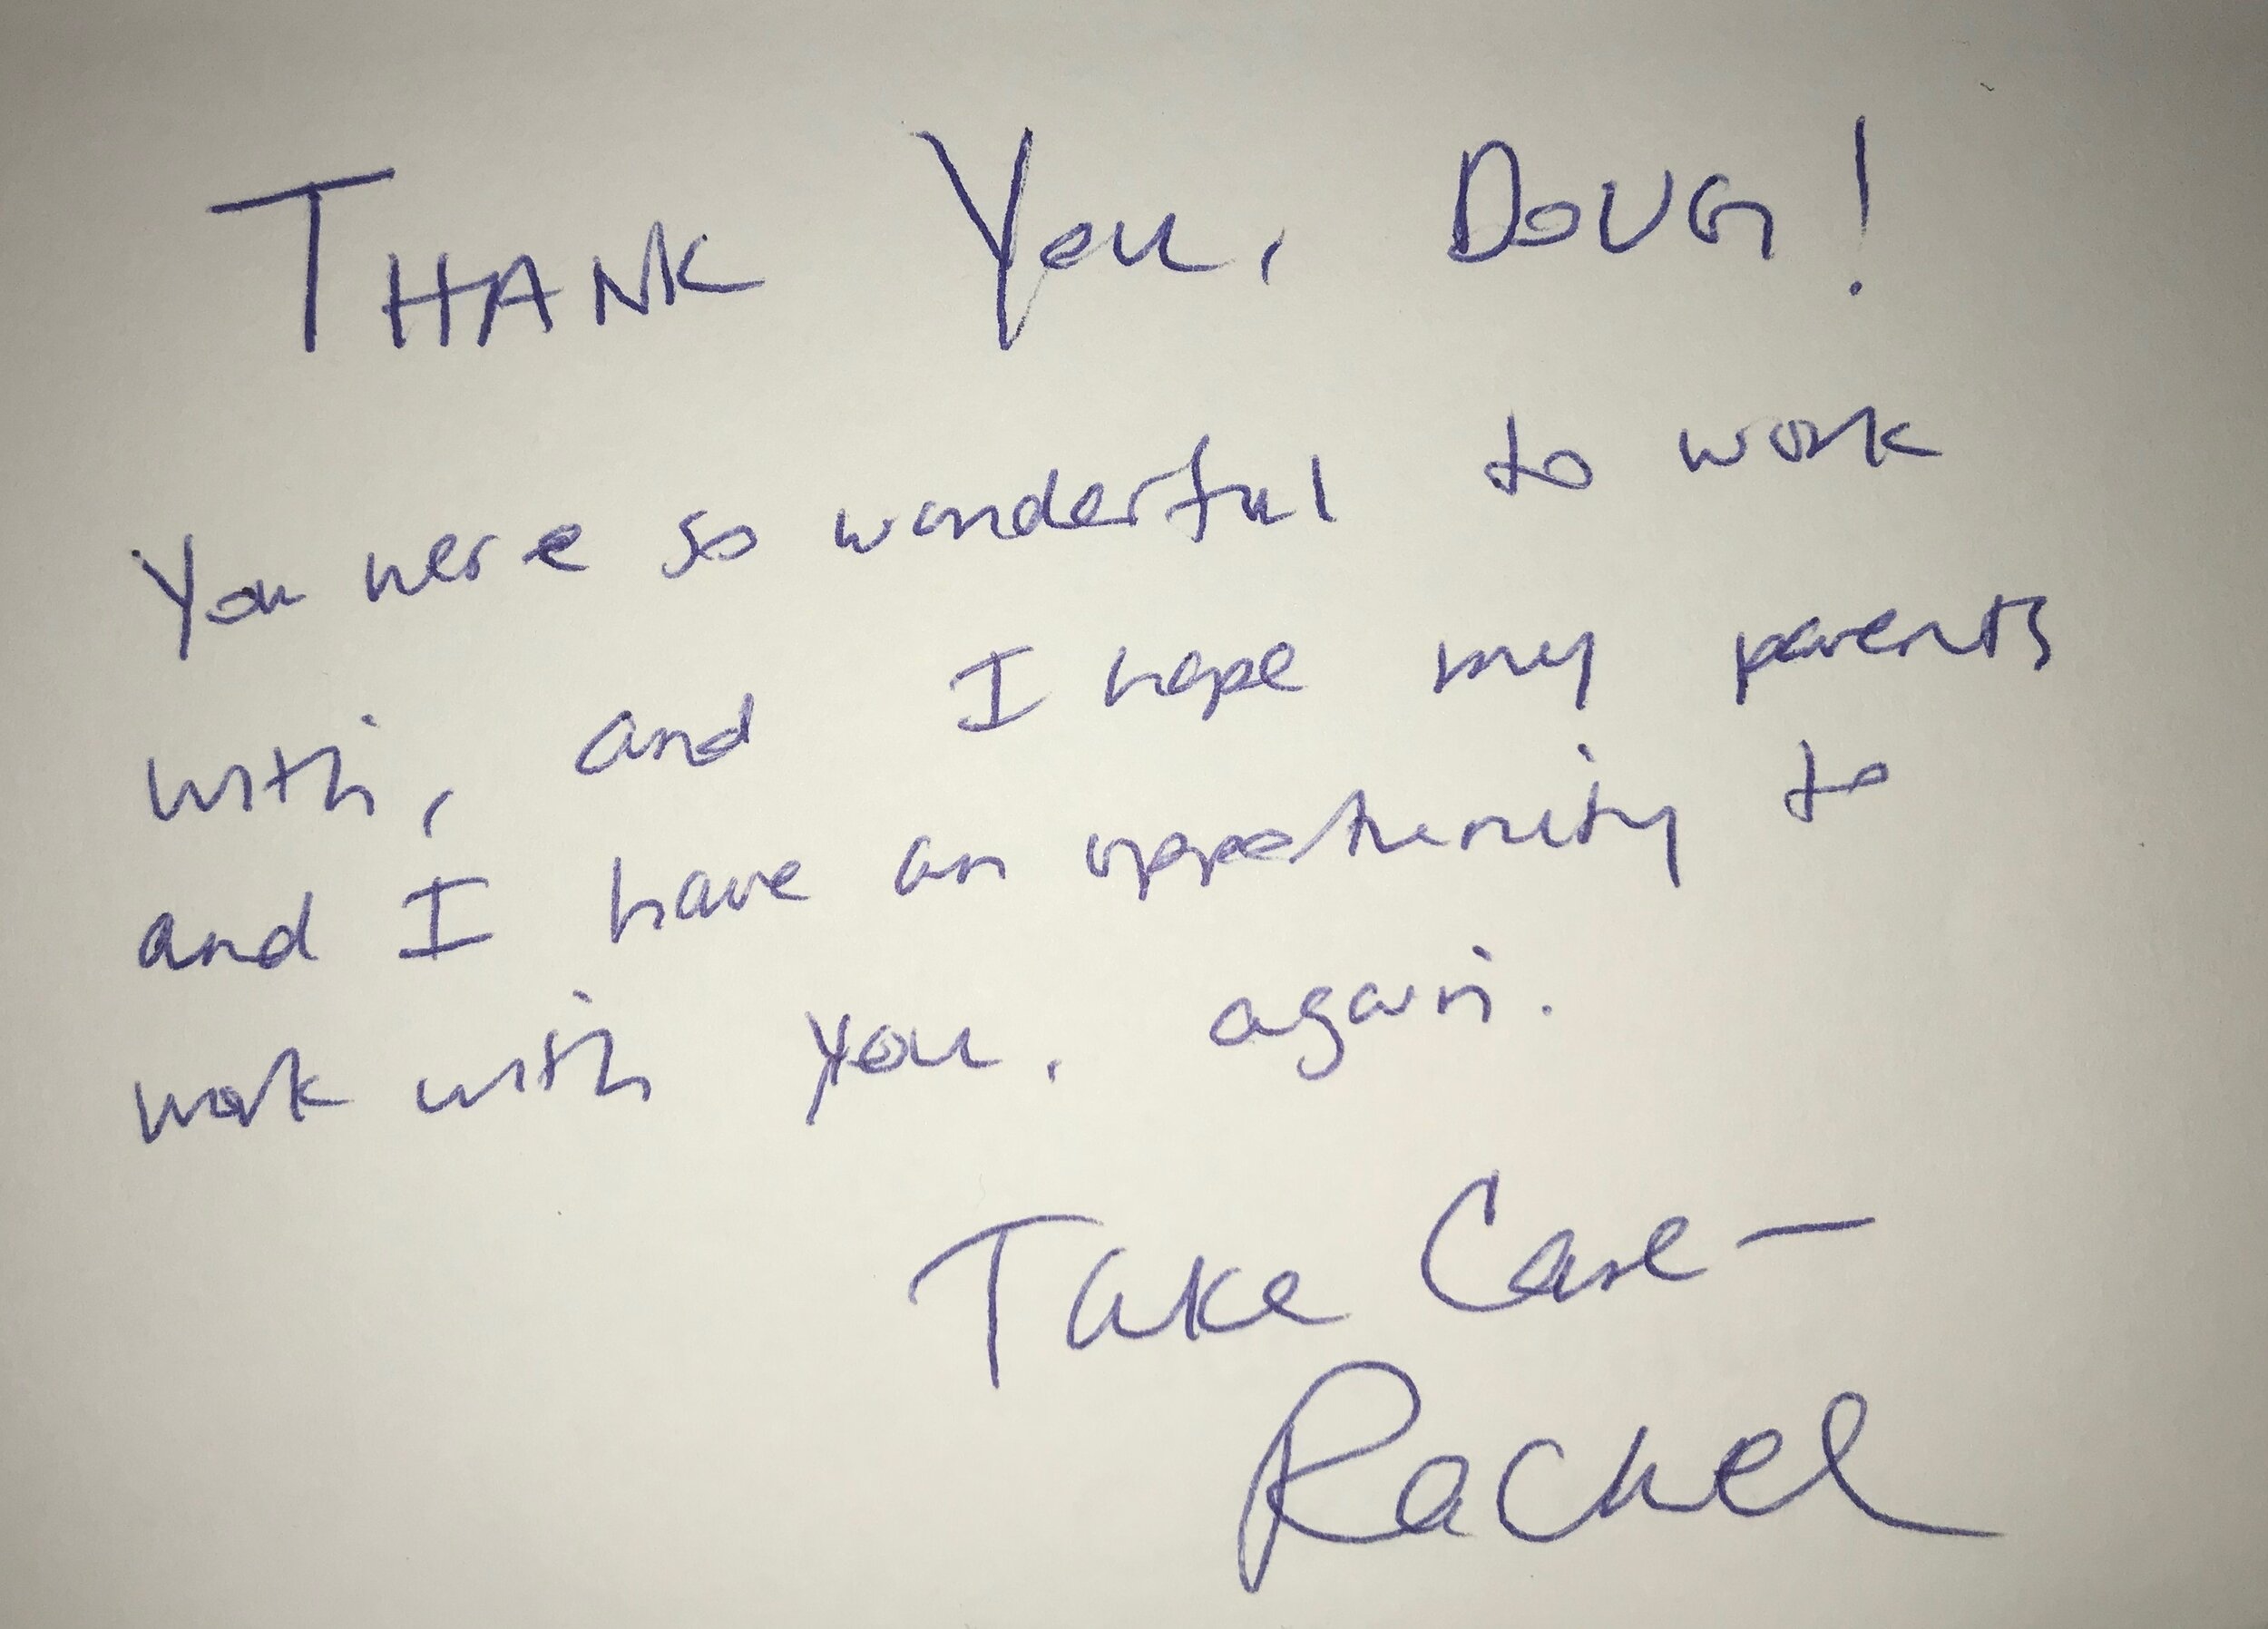 THANK You, DOUG!
You were so wonderful to work
with, and I hope my parents
and I have an oppotunity to
work with you, again.
Take Care—
Rachel